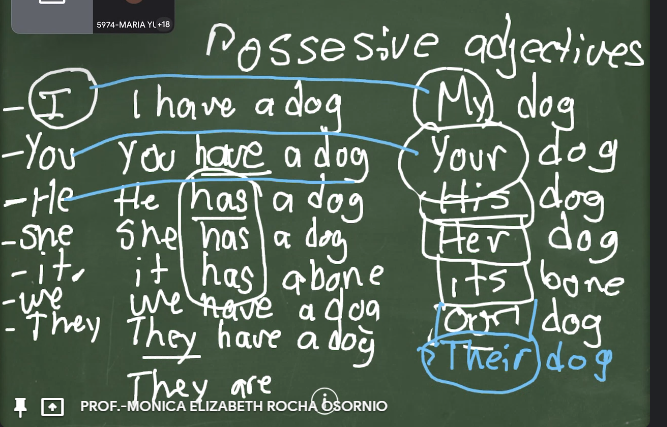 5974-MARIA YU +18
Possesive adjectives
- I I have a dog My dog
- You You have a dog Your dog
- He He has a dog His dog
- She She has a dog Her dog
- it. it has a bone its bone
- we we have a dog dog
- They They have a dog Their dog
They are
PROF.-MONICA ELIZABETH ROCHA OSORNIO